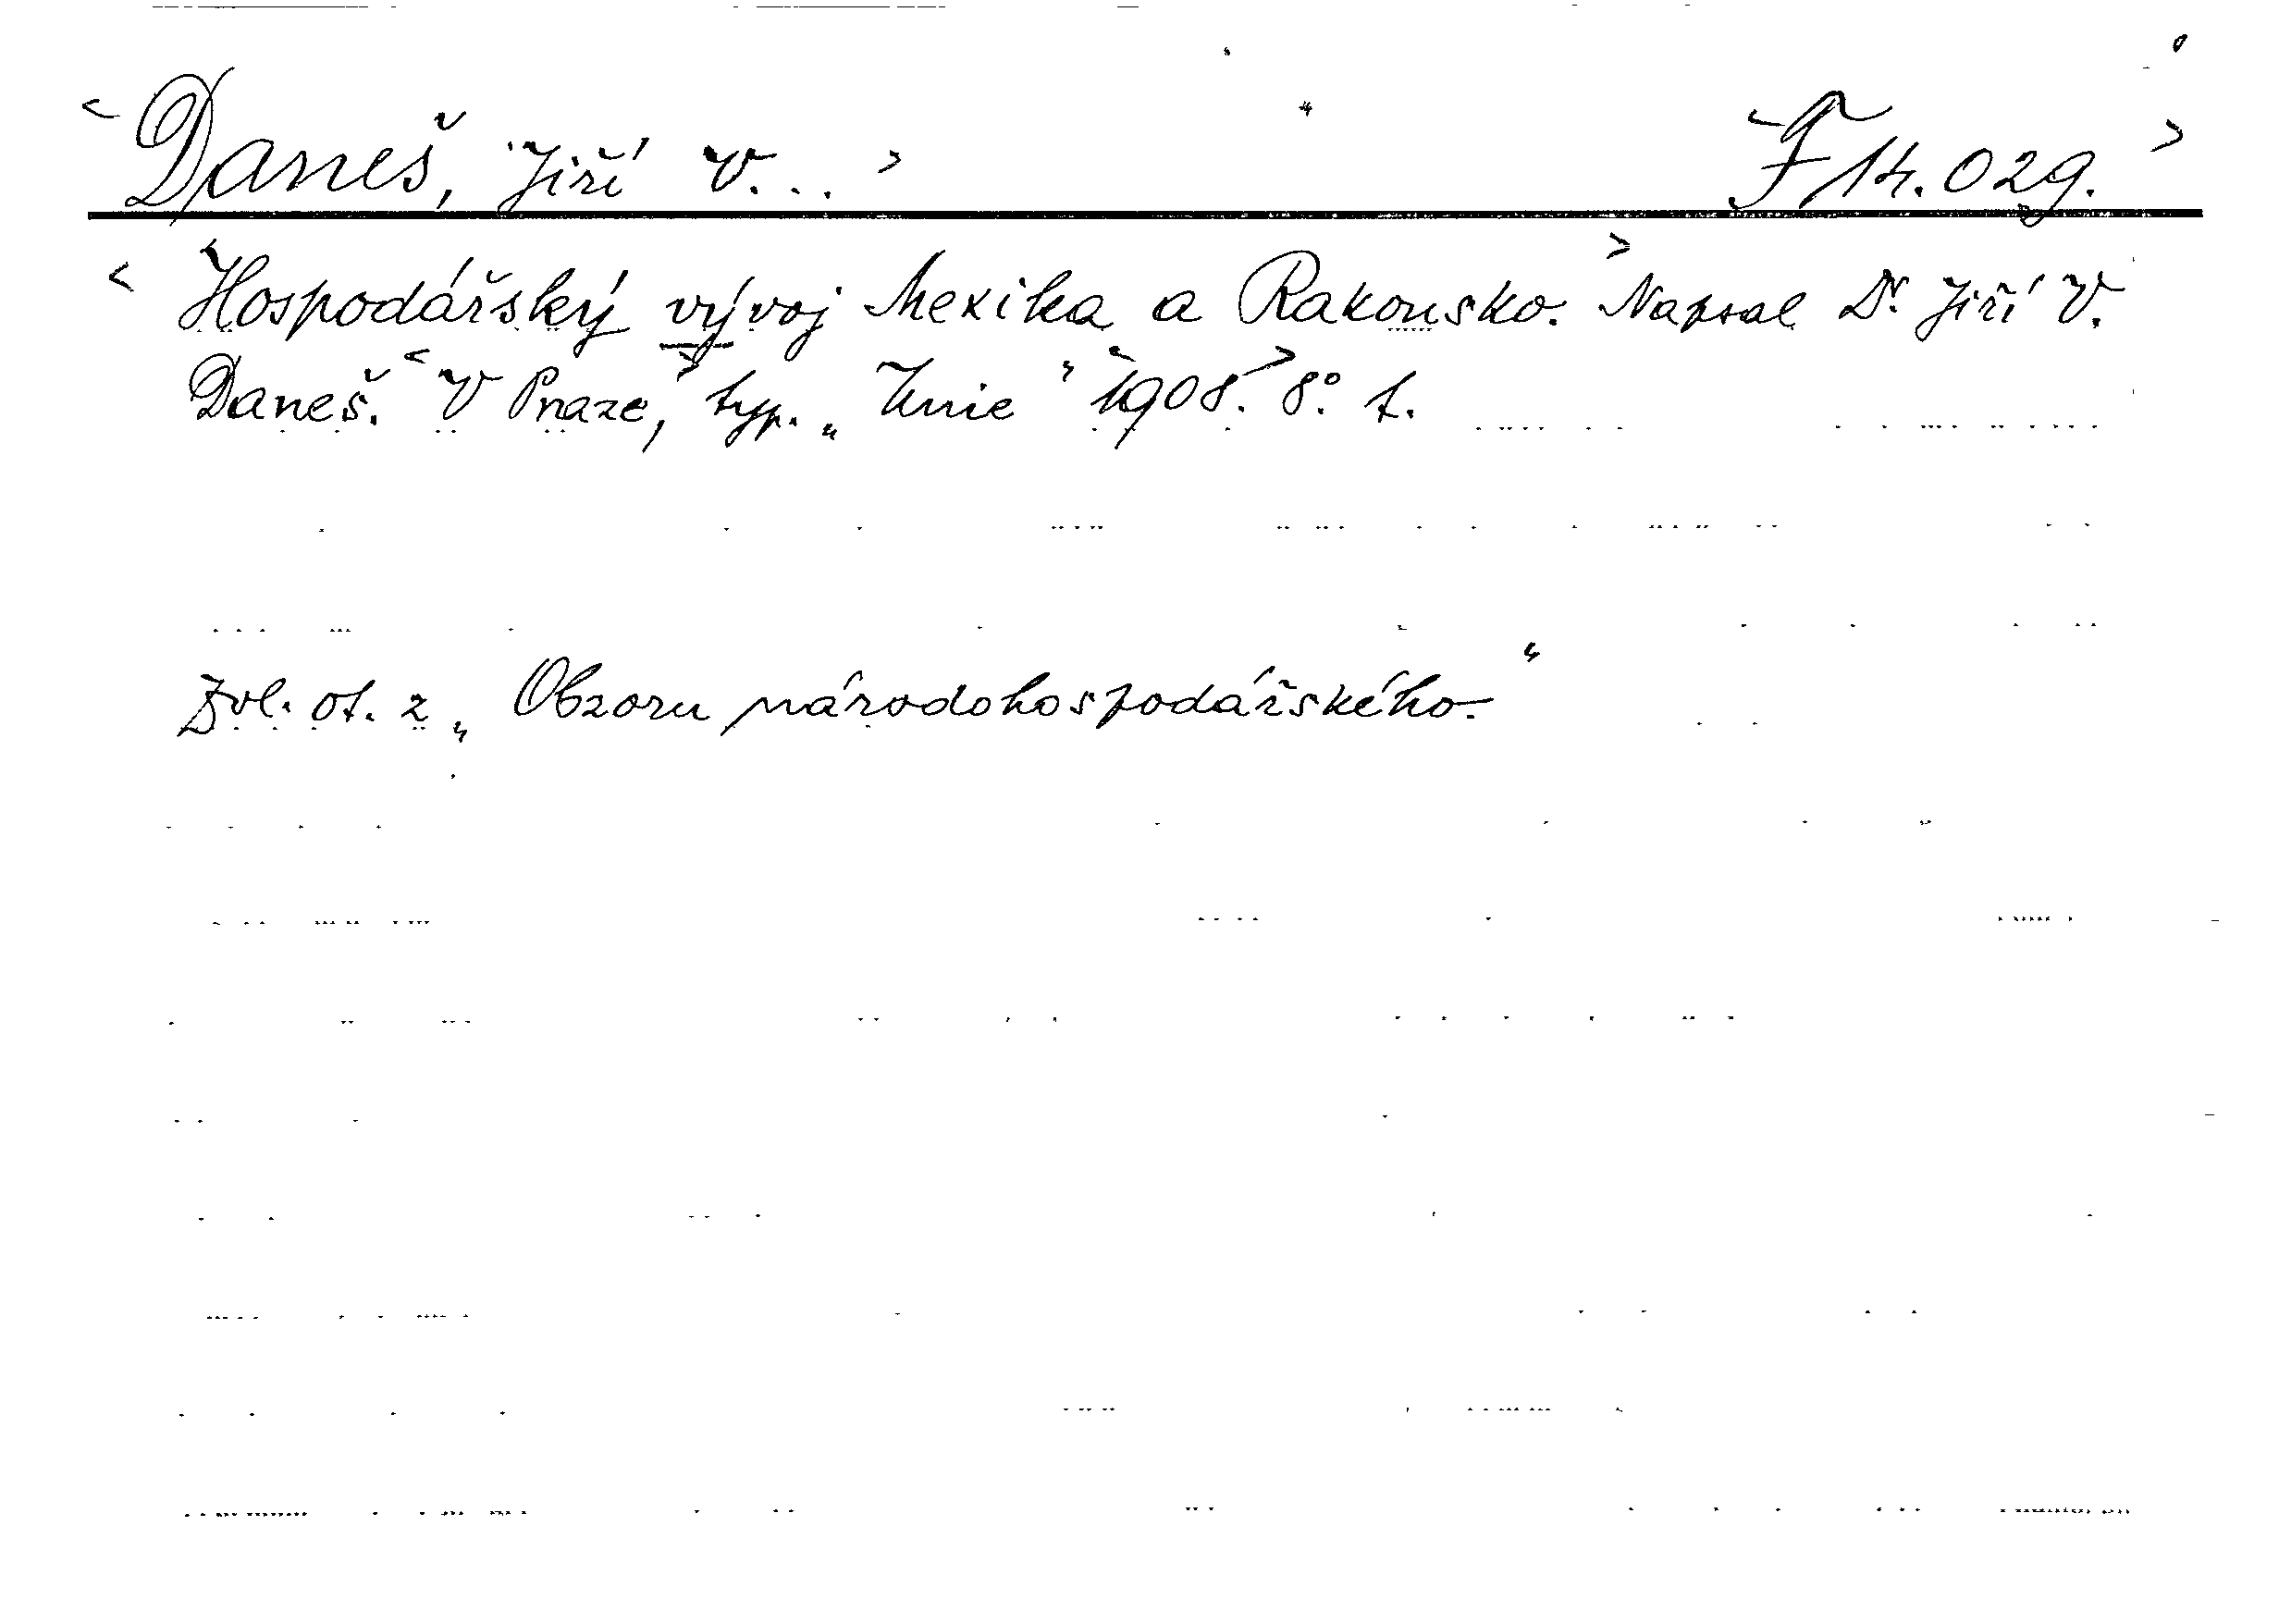 < Daneš, Jiří V... > < F 14.029. >
< Hospodářský vývoj Mexika a Rakousko. > Napsal Dr. Jiří V.
Daneš. < V Praze, > typ. „Unie“ < 1908. > 8°. f.
Zvl. ot. z „Obzoru národohospodářského.“